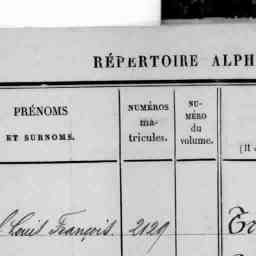 RÉPERTOIRE ALPH
PRÉNOMS
ET SURNOMS.
NUMÉROS
ma-
tricules.
NU-
MÉRO
du
volume.
(Il
Louis François. 2129